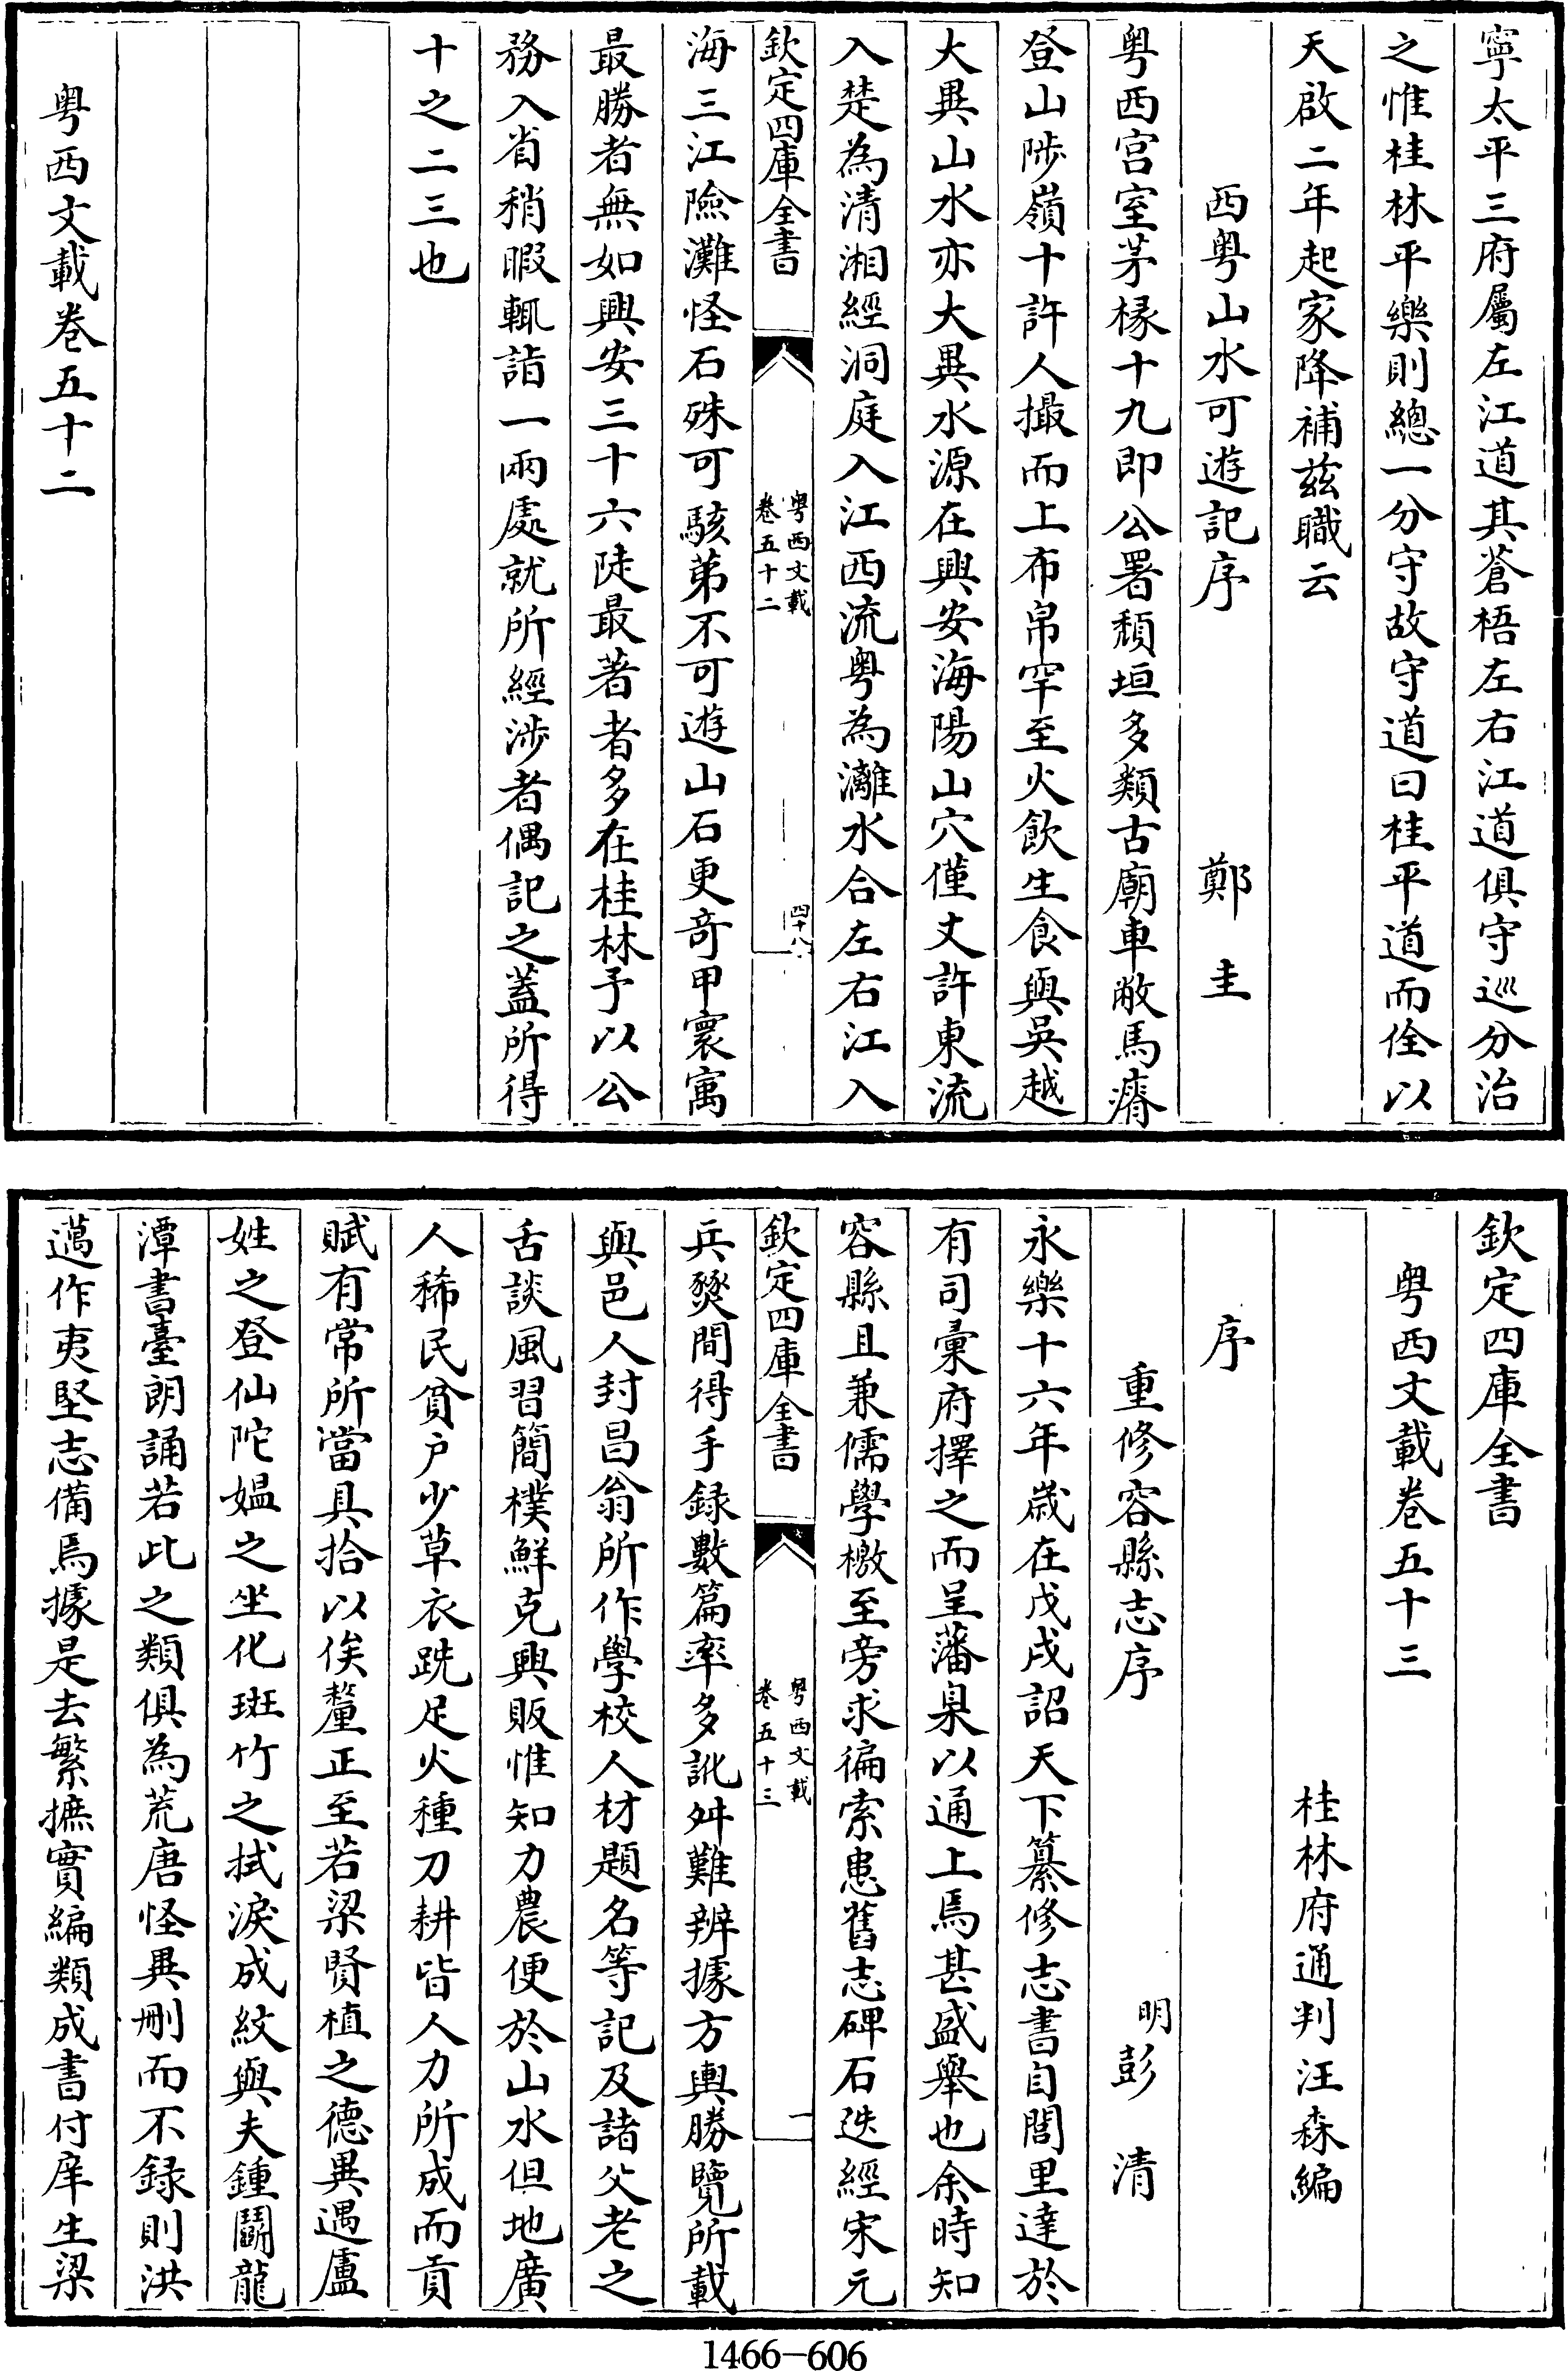 寧太平三府屬左江道其蒼梧左右江道俱守巡分治
之惟桂林平樂則總一分守故守道曰桂平道而佺以
天啟二年起家降補兹職云
西粤山水可遊記序 鄭圭
粤西宫室茅椽十九即公署頽垣多類古廟車敝馬瘠
登山陟嶺十許人撮而上布帛罕至火飲生食與吳越
大異山水亦大異水源在興安海陽山穴僅丈許東流
入楚為清湘經洞庭入江西流粤為灕水合左右江入
欽定四庫全書
粤西文載
卷五十二
四十八
海三江險灘怪石殊可駭第不可遊山石更竒甲寰寓
最勝者無如興安三十六陡最著者多在桂林予以公
務入省稍暇輒詣一兩處就所經涉者偶記之蓋所得
十之二三也
粤西文載卷五十二
欽定四庫全書
粤西文載卷五十三
桂林府通判汪森編
序
重修容縣志序 明彭清
永樂十六年歲在戊戌詔天下纂修志書自閭里達於
有司彙府擇之而呈藩臬以通上焉甚盛舉也余時知
容縣且兼儒學檄至旁求徧索患舊志碑石迭經宋元
欽定四庫全書
粤西文載
卷五十三
一
兵燹間得手録數篇率多訛舛難辨據方輿勝覽所載
與邑人封昌翁所作學校人材題名等記及諸父老之
舌談風習簡樸鮮克興販惟知力農便於山水但地廣
人稀民貧户少草衣跣足火種刀耕皆人力所成而貢
賦有常所當具拾以俟釐正至若梁賢植之德異遇盧
姓之登仙陀媪之坐化斑竹之拭淚成紋與夫鍾鬬龍
潭書臺朗誦若此之類俱為荒唐怪異刪而不録則洪
邁作夷堅志備焉據是去繁摭實編類成書付庠生梁
1466-606